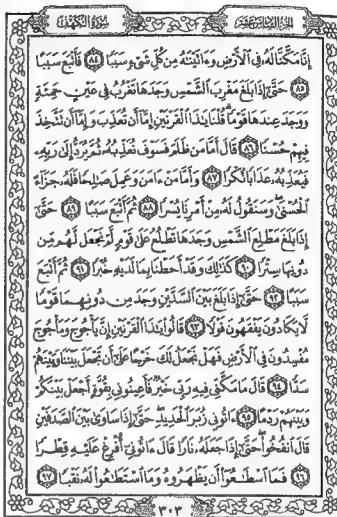 الجزء السادس عشر
سورة الكهف
إِنَّا مَكَّنَّا لَهُ فِي الْأَرْضِ وَءَاتَيْنَٰهُ مِن كُلِّ شَيْءٍ سَبَبًا ٨٤ فَأَتْبَعَ سَبَبًا
٨٥ حَتَّىٰ إِذَا بَلَغَ مَغْرِبَ الشَّمْسِ وَجَدَهَا تَغْرُبُ فِي عَيْنٍ حَمِئَةٍ
وَوَجَدَ عِندَهَا قَوْمًا قُلْنَا يَٰذَا الْقَرْنَيْنِ إِمَّا أَن تُعَذِّبَ وَإِمَّا أَن تَتَّخِذَ
فِيهِمْ حُسْنًا ٨٦ قَالَ أَمَّا مَن ظَلَمَ فَسَوْفَ نُعَذِّبُهُ ثُمَّ يُرَدُّ إِلَىٰ رَبِّهِ
فَيُعَذِّبُهُ عَذَابًا نُّكْرًا ٨٧ وَأَمَّا مَنْ ءَامَنَ وَعَمِلَ صَٰلِحًا فَلَهُ جَزَاءً
الْحُسْنَىٰ وَسَنَقُولُ لَهُ مِنْ أَمْرِنَا يُسْرًا ٨٨ ثُمَّ أَتْبَعَ سَبَبًا ٨٩ حَتَّىٰ
إِذَا بَلَغَ مَطْلِعَ الشَّمْسِ وَجَدَهَا تَطْلُعُ عَلَىٰ قَوْمٍ لَّمْ نَجْعَل لَّهُم مِّن
دُونِهَا سِتْرًا ٩٠ كَذَٰلِكَ وَقَدْ أَحَطْنَا بِمَا لَدَيْهِ خُبْرًا ٩١ ثُمَّ أَتْبَعَ
سَبَبًا ٩٢ حَتَّىٰ إِذَا بَلَغَ بَيْنَ السَّدَّيْنِ وَجَدَ مِن دُونِهِمَا قَوْمًا
لَّا يَكَادُونَ يَفْقَهُونَ قَوْلًا ٩٣ قَالُوا يَٰذَا الْقَرْنَيْنِ إِنَّ يَأْجُوجَ وَمَأْجُوجَ
مُفْسِدُونَ فِي الْأَرْضِ فَهَلْ نَجْعَلُ لَكَ خَرْجًا عَلَىٰ أَن تَجْعَلَ بَيْنَنَا وَبَيْنَهُمْ
سَدًّا ٩٤ قَالَ مَا مَكَّنِّي فِيهِ رَبِّي خَيْرٌ فَأَعِينُونِي بِقُوَّةٍ أَجْعَلْ بَيْنَكُمْ
وَبَيْنَهُمْ رَدْمًا ٩٥ ءَاتُونِي زُبَرَ الْحَدِيدِ حَتَّىٰ إِذَا سَاوَىٰ بَيْنَ الصَّدَفَيْنِ
قَالَ انفُخُوا حَتَّىٰ إِذَا جَعَلَهُ نَارًا قَالَ ءَاتُونِي أُفْرِغْ عَلَيْهِ قِطْرًا
٩٦ فَمَا اسْطَٰعُوا أَن يَظْهَرُوهُ وَمَا اسْتَطَٰعُوا لَهُ نَقْبًا ٩٧
٣٠٣